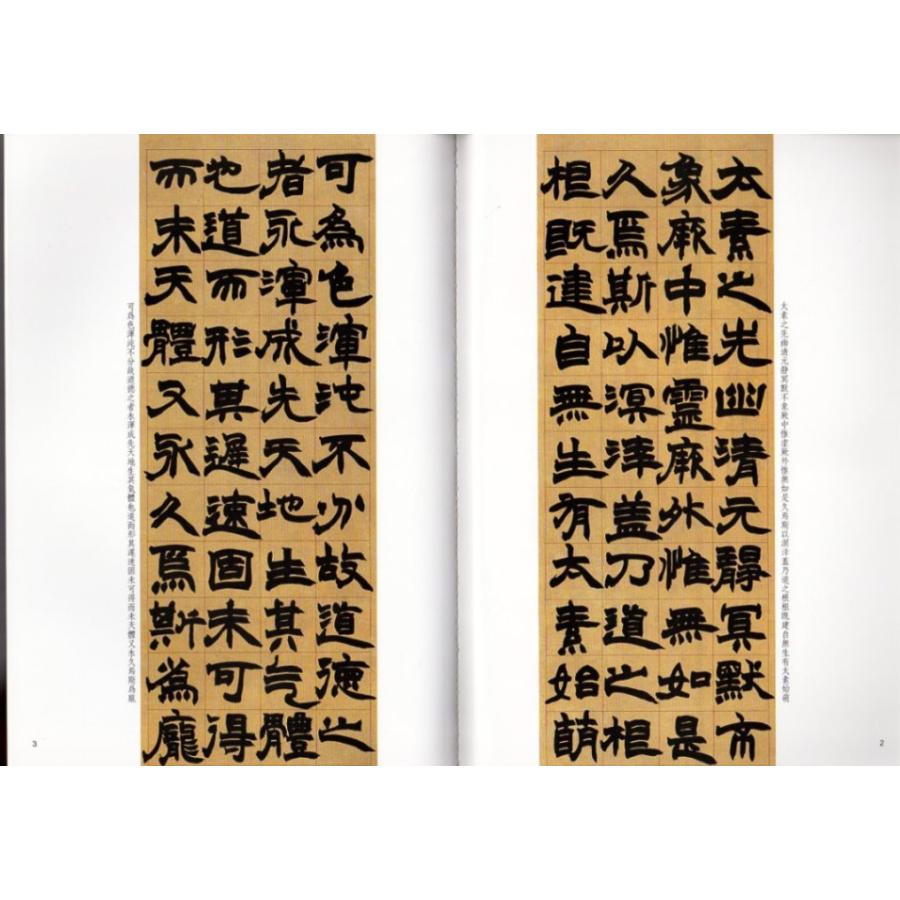 太素之先幽清元靜冥默不
象厥中惟靈厥外惟無如是
久焉斯以溟涬蓋乃道之根
根既建自無生有太素始萌
太素之先幽清元静冥默不象厥中惟虛厥外惟無如是久焉斯以溟涬蓋乃道之根根既建自無生有太素始萌
2
可為色渾沌不分故道德之
者永渾成先天地生其气體
也道而形其遲速固未可得
而未天體又永久焉斯為龐
可爲色渾沌不分故道德之者永渾成先天地生其氣體也道而形其遲速固未可得而未天體又永久焉斯爲
3